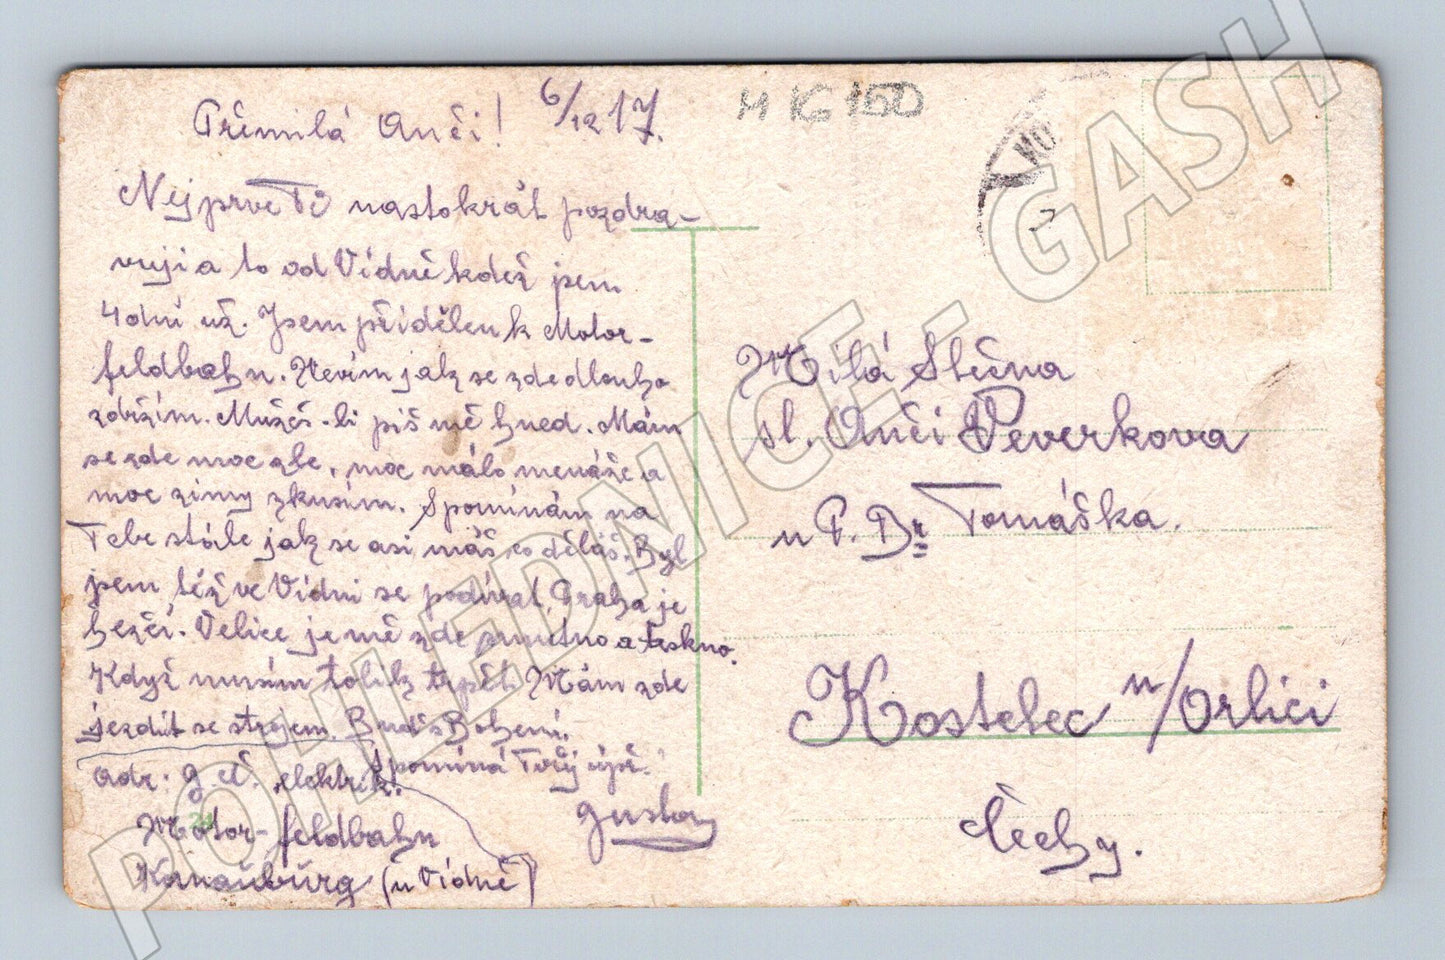 Přemilá Anči! 6/12 17.
Nejprve Ti nastokrát pozdra-
vuji a to od Vídně kdež jsem
4 dní už. Jsem přidělen k Motor-
feldbahn. Nevím jak se zde dlouho
zdržím. Můžeš-li piš mě hned. Mám
se zde moc zle, moc málo menáže a
moc zimy zkusím. Spomínám na
Tebe stále jak se asi máš co děláš. Byl
jsem též ve Vídni se podívat, Praha je
hezčí. Velice je mě zde smutno a teskno.
Když musím tolik trpět. Mám zde
jezdit se strojem. Buď s Bohem.
Spomíná Tvůj upř.
Gustav
Adr: g. č. elektrik.
Motor-feldbahn
Kaisersburg (u Vídně)
M KG 150
KO
Milá Slečna
sl. Anči Peverkova
u P. Dr Tomáška.
Kostelec n/Orlicí
Čechy.
24
POHLEDNICE - GASH